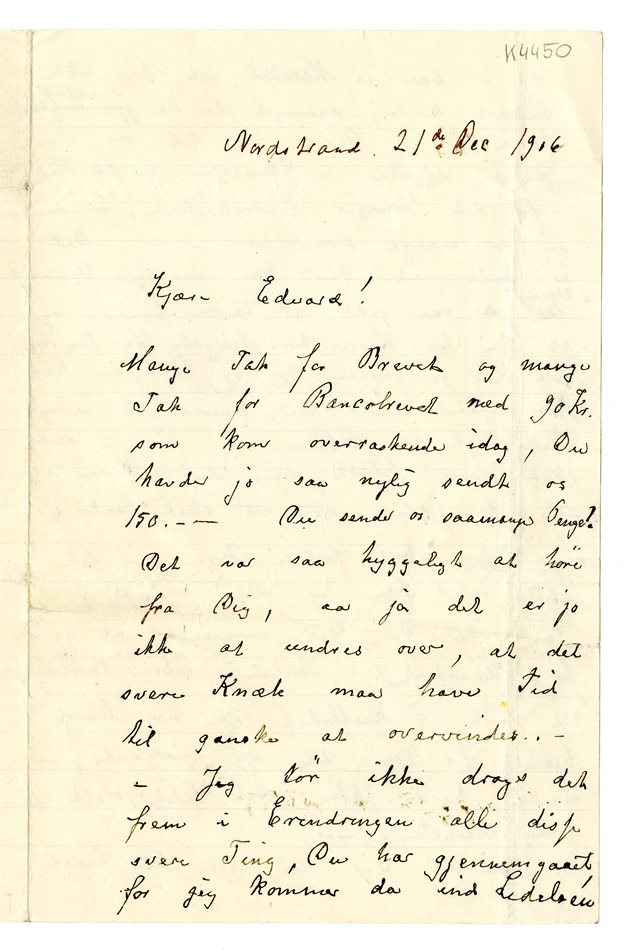 K4450
Nordstrand. 21de Dec 1906
Kjære Edvard!
Mange Tak for Brevet og mange
Tak for Bancobrevet med 90 Kr.
som kom overraskende idag, Du
havde jo saa nylig sendt os
150.-— Du sender os saamange Penge!
Det var saa hyggeligt at höre
fra Dig, aa ja det er jo
ikke at undres over, at det
svere Knæk maa have Tid
til ganske at overvindes.. –
– Jeg tör ikke drage det
frem i Erindringen alle disse
svere Ting, Du har gjennemgaaet
for jeg kommer da ind